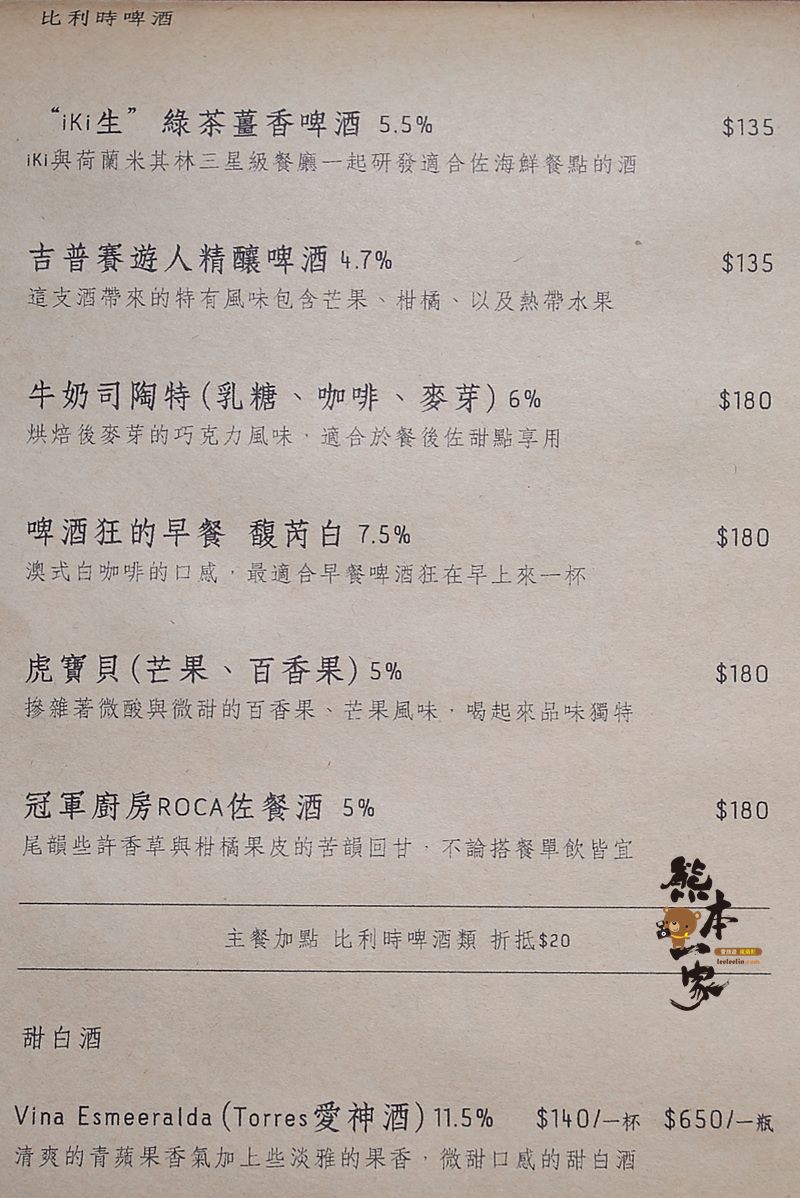 比利時啤酒
“iKi生” 綠茶薑香啤酒 5.5% $135
iKi與荷蘭米其林三星級餐廳一起研發適合佐海鮮餐點的酒
吉普賽遊人精釀啤酒 4.7% $135
這支酒帶來的特有風味包含芒果、柑橘、以及熱帶水果
牛奶司陶特(乳糖、咖啡、麥芽) 6% $180
烘焙後麥芽的巧克力風味，適合於餐後佐甜點享用
啤酒狂的早餐 馥芮白 7.5% $180
澳式白咖啡的口感，最適合早餐啤酒狂在早上來一杯
虎寶貝(芒果、百香果) 5% $180
摻雜著微酸與微甜的百香果、芒果風味，喝起來品味獨特
冠軍廚房ROCA佐餐酒 5% $180
尾韻些許香草與柑橘果皮的苦韻回甘，不論搭餐單飲皆宜
熊本一家
主餐加點 比利時啤酒類 折抵$20
甜白酒
Vina Esmeeralda (Torres愛神酒) 11.5% $140/一杯 $650/一瓶
清爽的青蘋果香氣加上些淡雅的果香，微甜口感的甜白酒